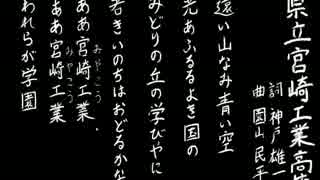 県立宮崎工業高
詞 神戸雄一
曲 園山民平
遠い山なみ青い空
光あふるるよき国の
みどりの丘の学びやに
若きいのちはおどるかな
ああ宮崎工業・
みやこう
ああ宮崎工業
みやこう
われらが学園